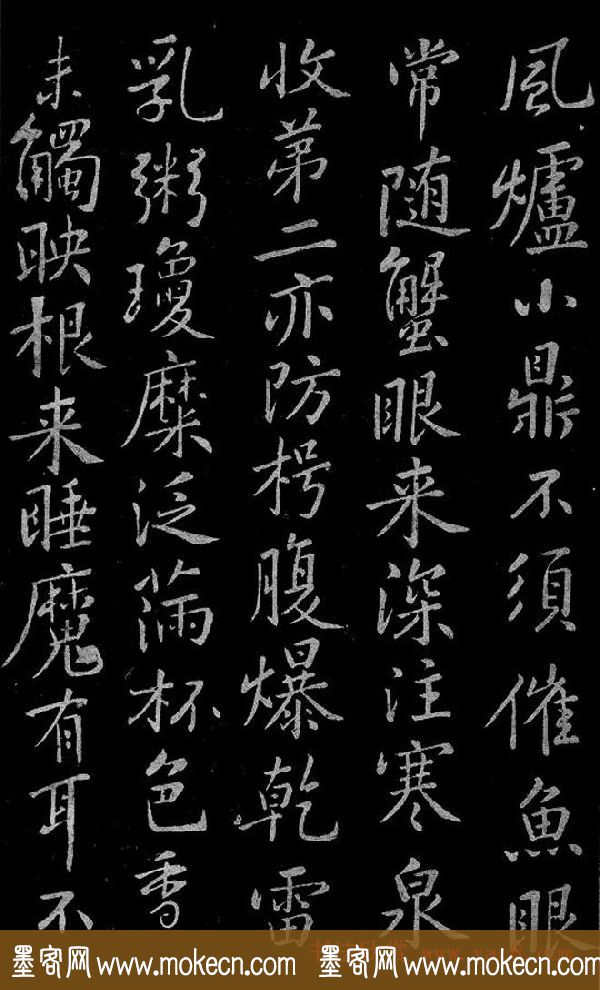 風爐小鼎不須催魚眼
常随蟹眼来深注寒泉
收第二亦防枵腹爆乾雷
乳粥瓊糜泛滿杯色香
未觸映根来睡魔有耳不
墨客网 www.mokecn.com 墨客网 www.mokecn.com